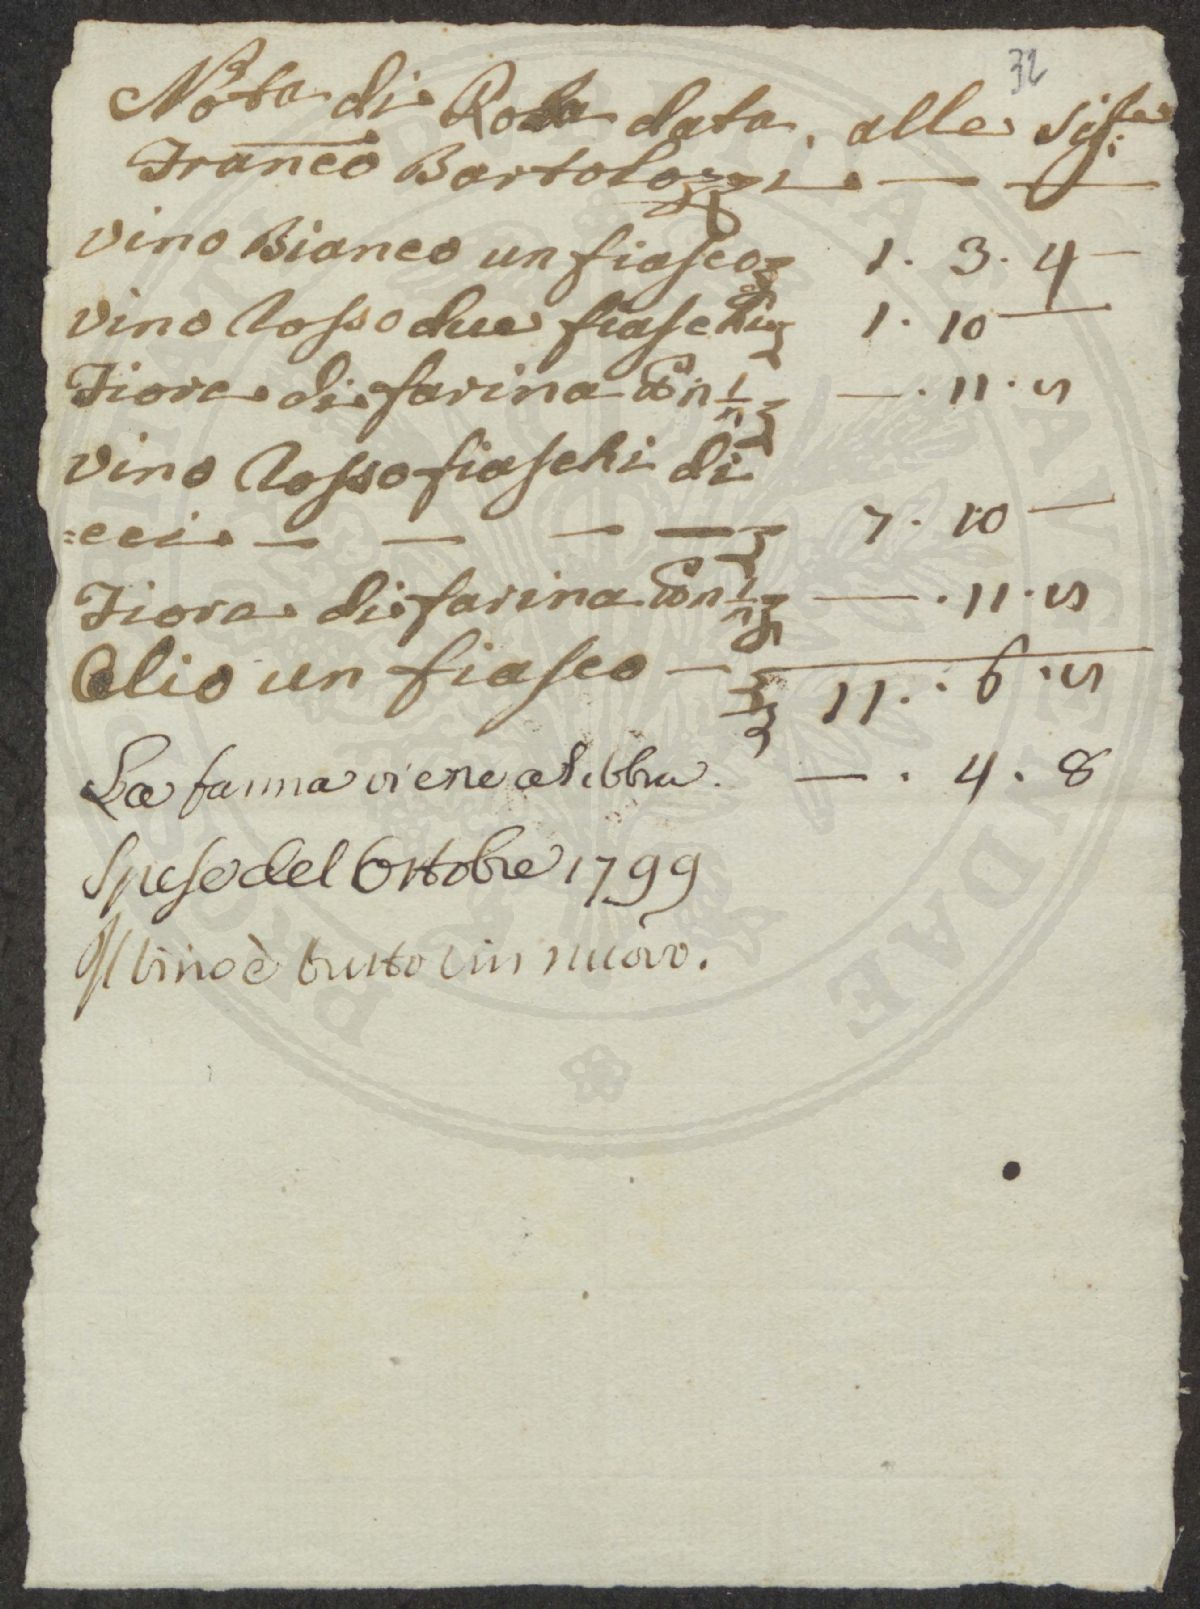 32
Nota di Roba data. alle Sig:re
Franco Bartolozzi — —
vino Bianco un fiasco 1. 3. 4 —
vino Rosso due fiaschi 1. 10 —
Fiore di farina — . 11. 8
vino Rosso fiaschi di
=eci — — — — 7. 10 —
Fiore di farina — . 11. 8
Olio un fiasco — 11. . 6. 8
La farina viene a libbra. — . 4. 8
Spese del Ottobre 1799
Il vino è tutto vin nuovo.
PRO
AE